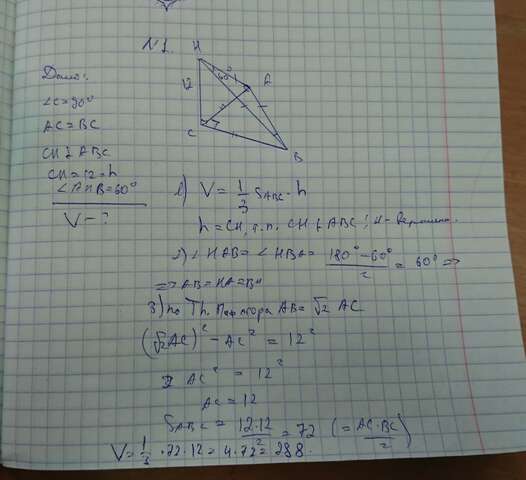 №1.
H
60°
A
12
C
B
Дано:
∠C=90°
AC=BC
CH ⊥ ABC
CH=12=h
∠AHB=60°
V-?
1) V = 1/3 S_ABC · h
h=CH, т.к. CH ⊥ ABC; H - вершина.
2) ∠HAB=∠HBA= (180°-60°)/2 = 60° =>
=> AB=HA=BH
3) по Th. Пифагора AB=√2 AC
(√2AC)² - AC² = 12²
AC² = 12²
AC=12
S_ABC = 12·12/2 = 72 (= AC·BC/2)
V= 1/3 · 72·12= 4·72= 288.